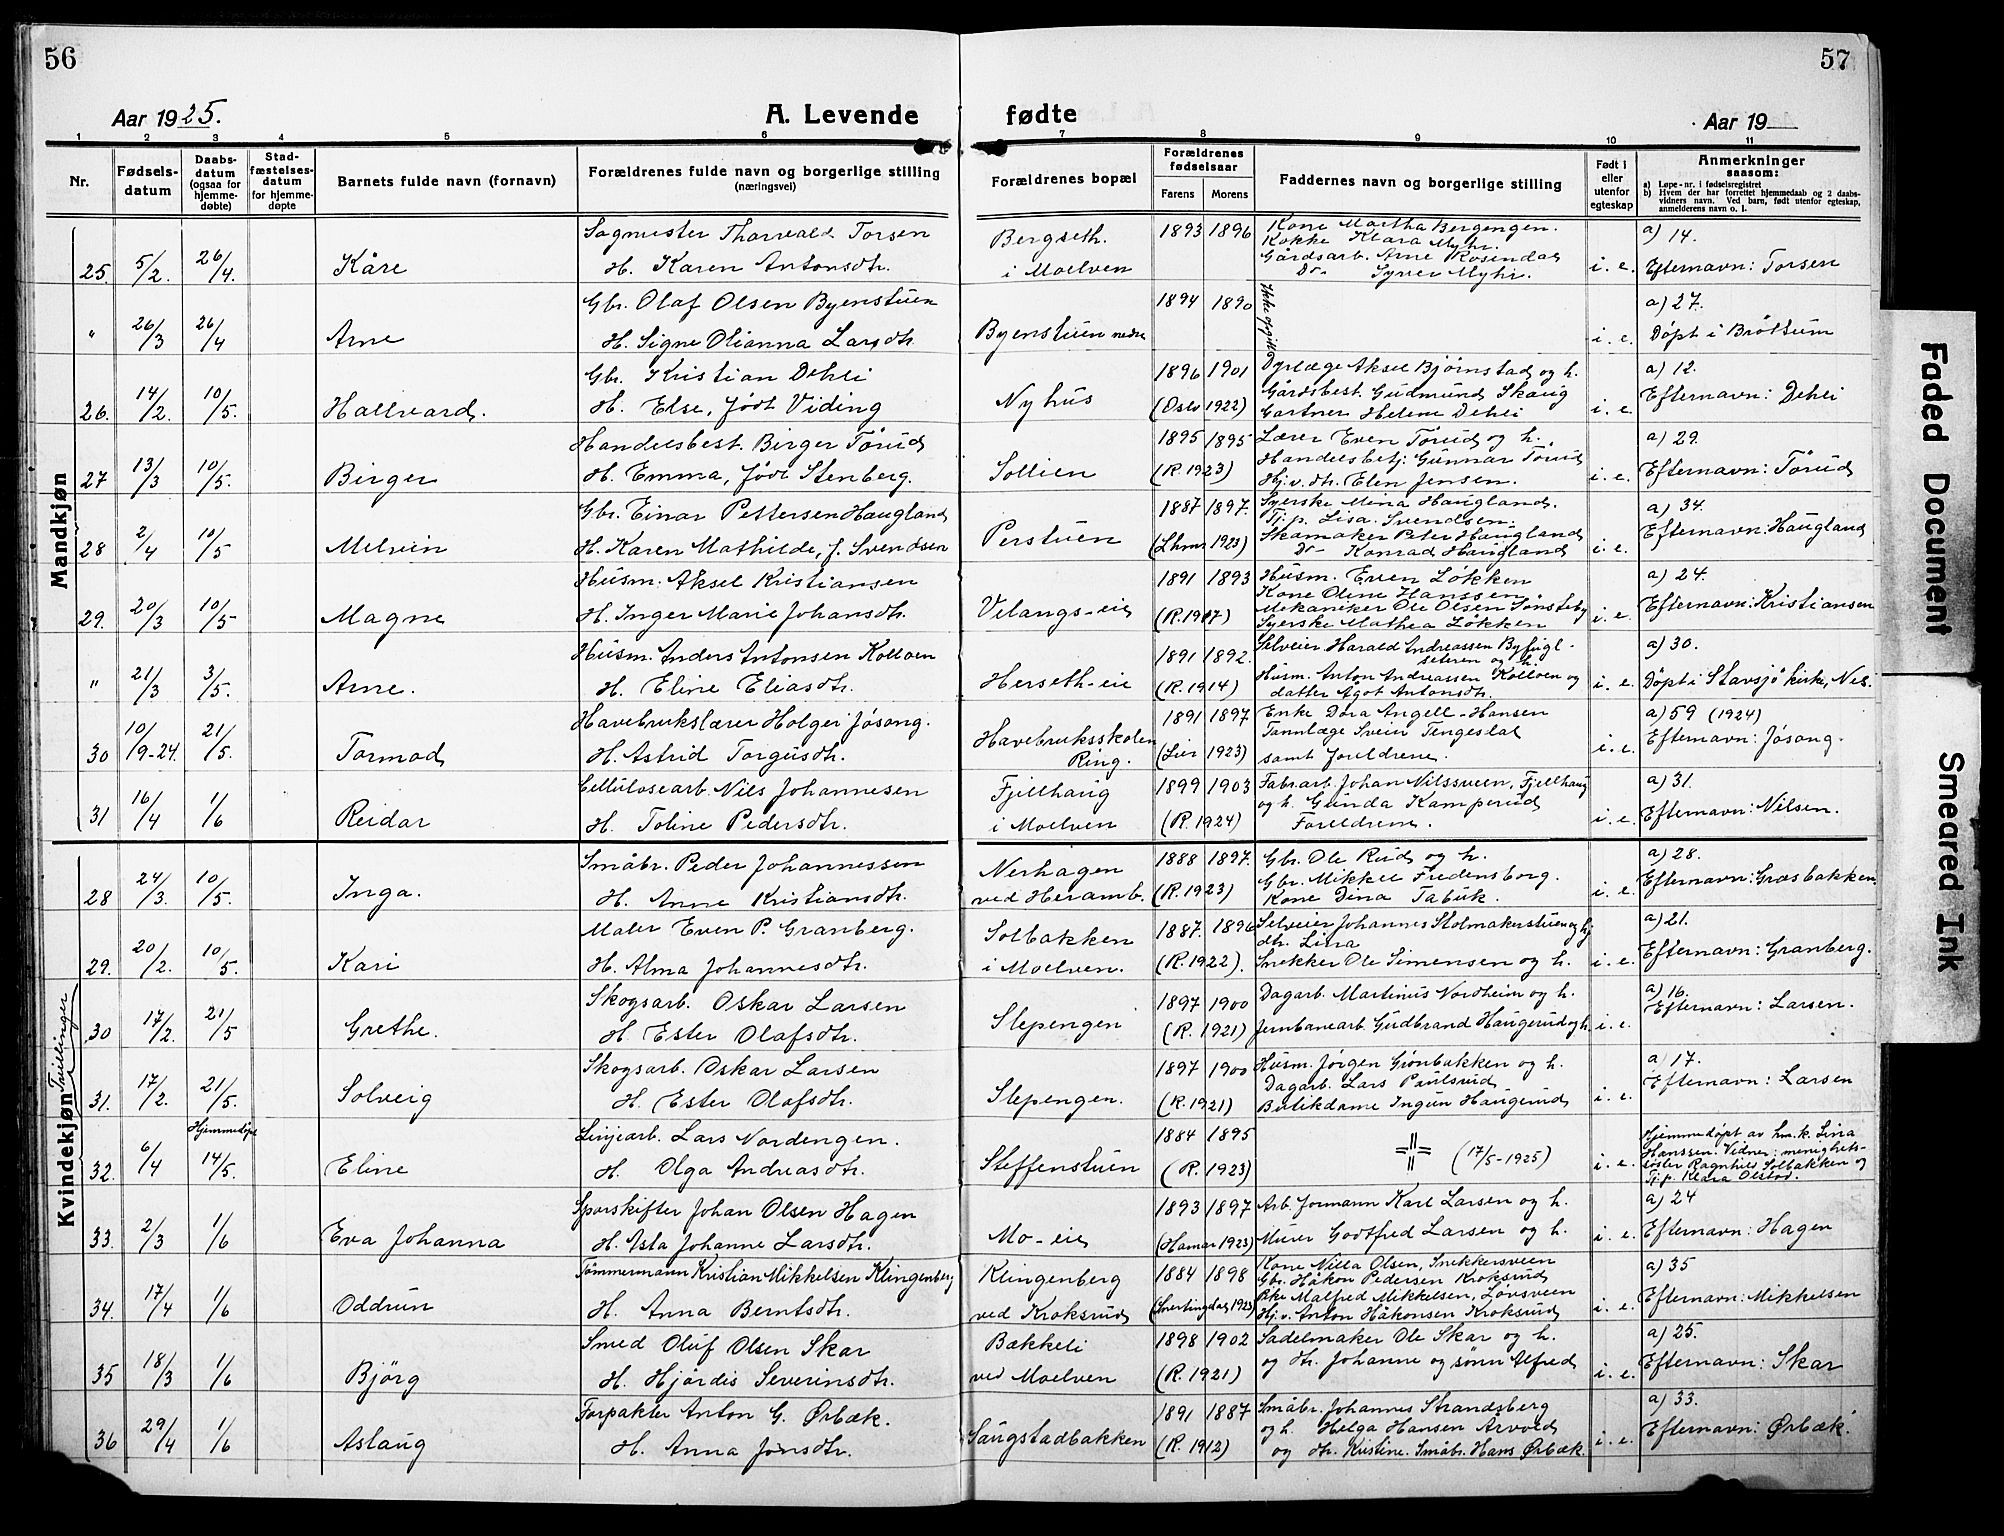 56
57
Aar 1925.
A. Levende
fødte
Aar 19
1 2 3 4 5 6 7 8 9 10 11
Nr.
Fødsels-
datum
Daabs-
datum
(ogsaa for
hjemme-
døbte)
Stad-
fæstelses-
datum
for hjemme-
døpte
Barnets fulde navn (fornavn)
Forældrenes fulde navn og borgerlige stilling
(næringsvei)
Forældrenes bopæl
Forældrenes
fødselsaar
Farens Morens
Faddernes navn og borgerlige stilling
Født i
eller
utenfor
egteskap
Anmerkninger
saasom:
a) Løpe-nr. i fødselsregistret
b) Hvem der har forrettet hjemmedaab og 2 daabs-
vidners navn. Ved barn, født utenfor egteskap,
anmelderens navn o. l.
Mandkjøn
25. 5/2. 26/4. Kåre
Sagmester Thorvald Torsen
H. Karen Antonsdtr.
Bergseth.
i Moelven
1893 1896
Kone Martha Bergengen.
Kokke Klara Myhr.
Gårdsarb. Arne Rosendal
Do- Syver Myhr.
i. e.
a) 14.
Efternavn: Torsen
" 26/3 26/4 Arne
Gbr. Olaf Olsen Byenstuen
H. Signe Olianna Larsdtr.
Byenstuen nedre
1894 1890
Ikke opgitt
i. e.
a) 27.
Døpt i Brøttum
26. 14/2. 10/5. Hallvard.
Gbr. Kristian Dehli
H. Else, født Viding
Nyhus
1896 1901
(Oslo 1922)
Dyrlæge Aksel Bjørnstad og h.
Gårdsbest. Gudmund Skaug
Gartner Helene Dehli
i. e.
a) 12.
Efternavn: Dehli
27 13/3 10/5. Birger
Handelsbest. Birger Tørud
H. Emma, født Stenberg.
Sollien
1895 1895
(R. 1923)
Lærer Even Tørud og h.
Handelsbetj. Gunnar Tørud
Hj.v. dtr. Elen Jensen.
i. e.
a) 29.
Efternavn: Tørud
28 2/4 10/5 Melvin
Gbr. Einar Pettersen Haugland
H. Karen Mathilde, f. Svendsen
Perstuen
1887 1897.
(Lhmr 1923)
Syerske Mina Haugland.
Tj.p. Lisa Svendsen.
Skomaker Peter Haugland
Do- Konrad Haugland
i. e.
a) 34.
Efternavn: Haugland
29. 20/3 10/5 Magne
Husm. Aksel Kristiansen
H. Inger Marie Johansdtr.
Velangs-eie
1891 1893
(R. 1917)
Husm. Even Løkken
Kone Oline Hanssen
Mekaniker Ole Olsen Sønsteby
Syerske Mathea Løkken
i. e.
a) 24.
Efternavn: Kristiansen
" 21/3 3/5. Arne.
Husm. Anders Antonsen Kolloen
H. Eline Eliasdtr.
Herseth-eie
1891 1892.
(R. 1914)
Selveier Harald Andreassen Byfugl-
seteren og h.
Husm. Anton Andreassen Kolloen og
datter Agot Antonsdtr.
i. e.
a) 30.
Døpt i Stavsjø kirke, Nes.
30 10/9-24. 21/5. Tormod
Havebrukslærer Holger Jøsang.
H. Astrid Torgusdtr.
Havebruksskolen
Ring.
1891 1897
(Lier 1923)
Enke Dora Angell-Hansen
Tannlæge Svein Tengesdal
samt foreldrene.
i. e.
a) 59 (1924)
Efternavn: Jøsang.
31 16/4 1/6 Reidar
Cellulosearb. Nils Johannesen
H. Toline Pedersdtr.
Fjellhaug
i Moelven
1899 1903
(R. 1924)
Fabrarb. Johan Nilssveen, Fjellhaug
og h. Gunda Kamperud
Foreldrene.
i. e.
a) 31.
Efternavn: Nilsen.
Kvindekjøn
28 24/3. 10/5. Inga.
Småbr. Peder Johannessen
H. Anne Kristiansdtr.
Nerhagen
ved Heramb.
1888 1897.
(R. 1923)
Gbr. Ole Rud og h.
Gbr. Mikkel Fredensborg.
Kone Dina Tabuk.
i. e.
a) 28.
Efternavn: Græsbakken
29. 20/2. 10/5. Kari
Maler Even P. Granberg.
H. Alma Johannesdtr.
Solbakken
i Moelven.
1887. 1896
(R. 1922).
Selveier Johannes Stolmakerstuen og h.
dtr. Lina
Snekker Ole Simensen og h.
i. e.
a) 21.
Efternavn: Granberg.
Tvillinger
30 17/2. 21/5 Grethe.
Skogsarb. Oskar Larsen
H. Ester Olafsdtr.
Slepengen
1897 1900
(R. 1921)
Dagarb. Martinus Nordheim og h.
Jernbanearb. Gudbrand Haugerud og h.
i. e.
a) 16.
Efternavn: Larsen.
31. 17/2. 21/5. Solveig
Skogsarb. Oskar Larsen
H. Ester Olafsdtr.
Slepengen.
1897 1900
(R. 1921)
Husm. Jørgen Grønbakken og h.
Dagarb. Lars Paulsrud
Butikdame Ingun Haugerud
i. e.
a) 17.
Efternavn: Larsen
32. 6/4 Hjemmedøpt 14/5. Eline
Linjearb. Lars Nordengen.
H. Olga Andreasdtr.
Steffenstuen
1884 1895
(R. 1923)
(17/5-1925)
i. e.
Hjemmedøpt av hm.k. Lina
Hanssen. Vidner: menighets-
søster Ragnhild Solbakken og
Tj.p. Klara Olstad.
33. 2/3 1/6 Eva Johanna
Sporskifter Johan Olsen Hagen
H. Asta Johanne Larsdtr.
Mo-eie
1893 1897
(Hamar 1923)
Arb. formann Karl Larsen og h.
Murer Godtfred Larsen og h.
i. e.
a) 24
Efternavn: Hagen
34. 17/4 1/6 Oddrun
Tømmermann Kristian Mikkelsen Klingenberg
H. Anna Berntsdtr.
Klingenberg
ved Kroksrud
1884 1898
(Snertingdal 1923)
Kone Nilla Olsen, Snekkersveen
Gbr. Håkon Pedersen Kroksrud
Pike Malfred Mikkelsen, Løvsveen
Hj.v. Anton Håkonsen Kroksrud
i. e.
a) 35
Efternavn: Mikkelsen
35 18/3 1/6 Bjørg
Smed Oluf Olsen Skar
H. Hjørdis Severinsdtr.
Bækkeli
ved Moelven
1898 1902
(R. 1921)
Sadelmaker Ole Skar og h.
og dtr. Johanne og sønn Alfred
i. e.
a) 25.
Efternavn: Skar
36 29/4 1/6 Aslaug
Forpakter Anton G. Ørbæk.
H. Anna Jonsdtr.
Saugstadbakken
1891 1887
(R. 1912)
Småbr. Johannes Strandsberg
og h. Helga Hansen Arvold
og dtr. Kristine. Småbr. Hans Ørbæk.
i. e.
a) 33.
Efternavn: Ørbæk.
Faded Document
Smeared Ink